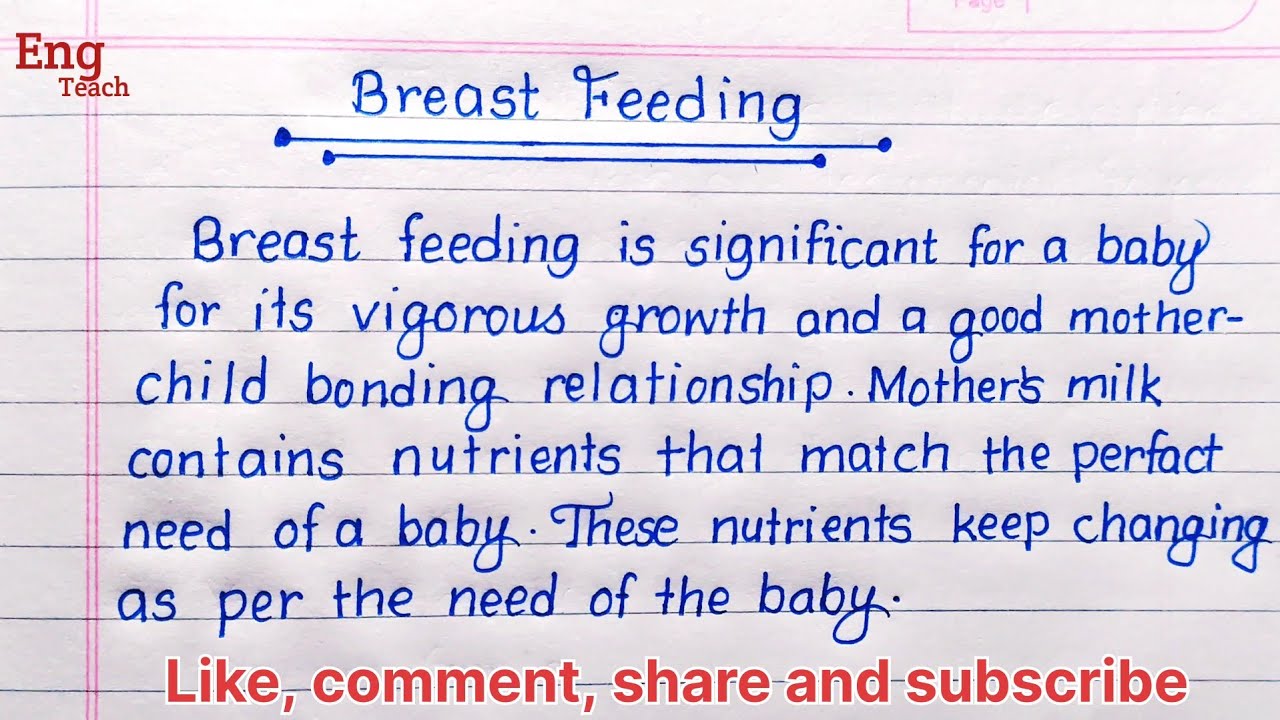 Page
Eng
Teach
Breast Feeding
Breast feeding is significant for a baby
for its vigorous growth and a good mother-
child bonding relationship. Mother's milk
contains nutrients that match the perfact
need of a baby. These nutrients keep changing
as per the need of the baby.
Like, comment, share and subscribe